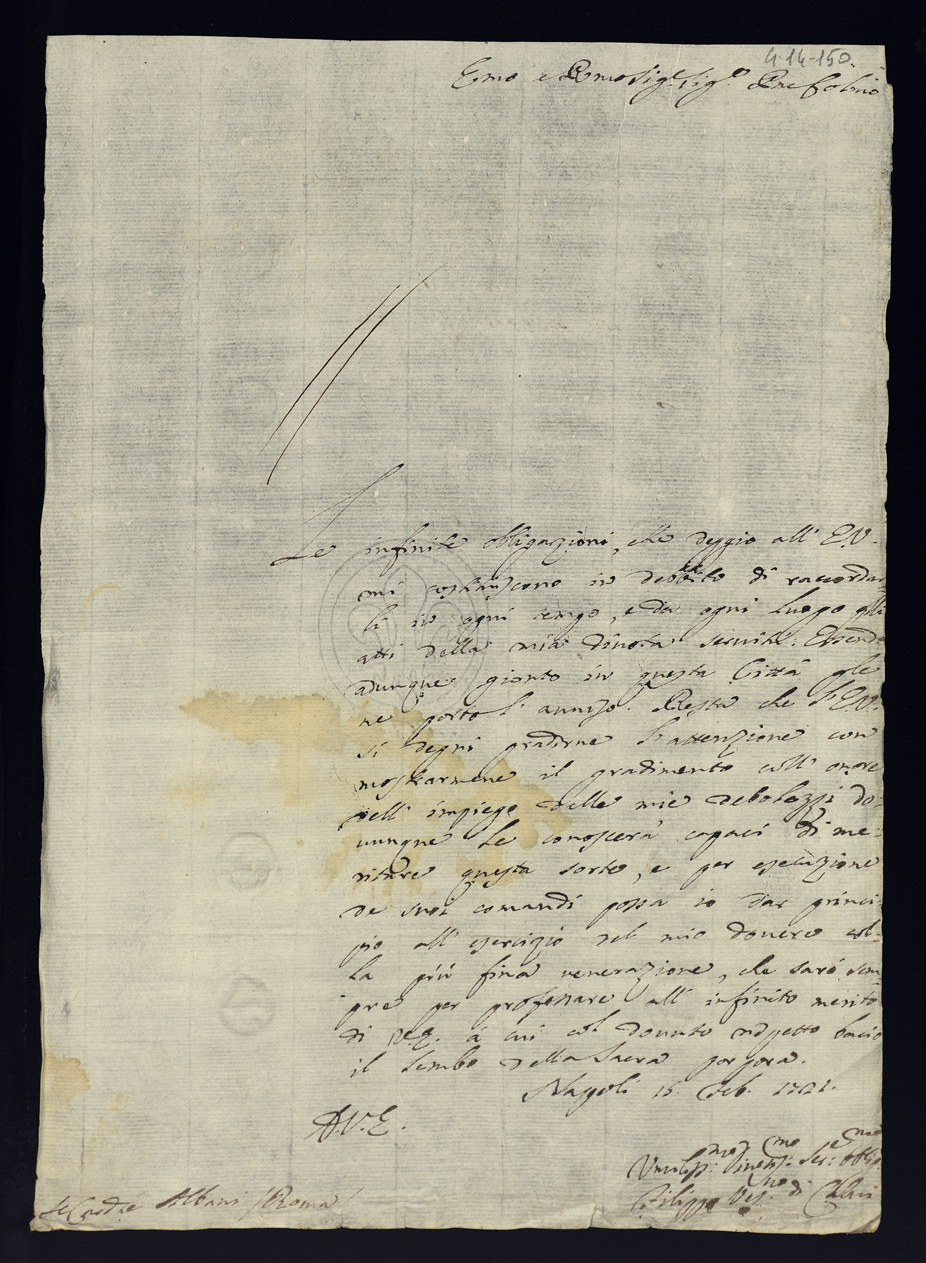 4-14-150.
Emo e Rmo Sig.r Sig.r Pne Colmo
Le infinite obligazioni, che deggio all' E.V.
mi costituiscono in debbito di raccordar
li in ogni tempo, e da ogni luogo gli
atti della mia divota servitù. Essendo
adunque gionto in questa Città gle
ne porto l' avviso. Resta che l'E.V.
si degni gradirne l'attenzione con
mostrarmene il gradimento coll' onore
nell' impiego delle mie debolezze do
vunque le conoscerà capaci di me:
ritare questa sorte, e per esecuzione
de suoi comandi possa io dar princi
pio all' esercizio del mio dovere col
la più fina venerazione, che sarò sem
pre per professare all' infinito merito
di V.E. à cui col dovuto rispetto bacio
il lembo della Sacra porpora.
Napoli 15. Feb. 1721.
D.V.E.
Umiliss:mo Se:re Oblig
Filippo Ves:vo di Calvi
Albani (Roma)